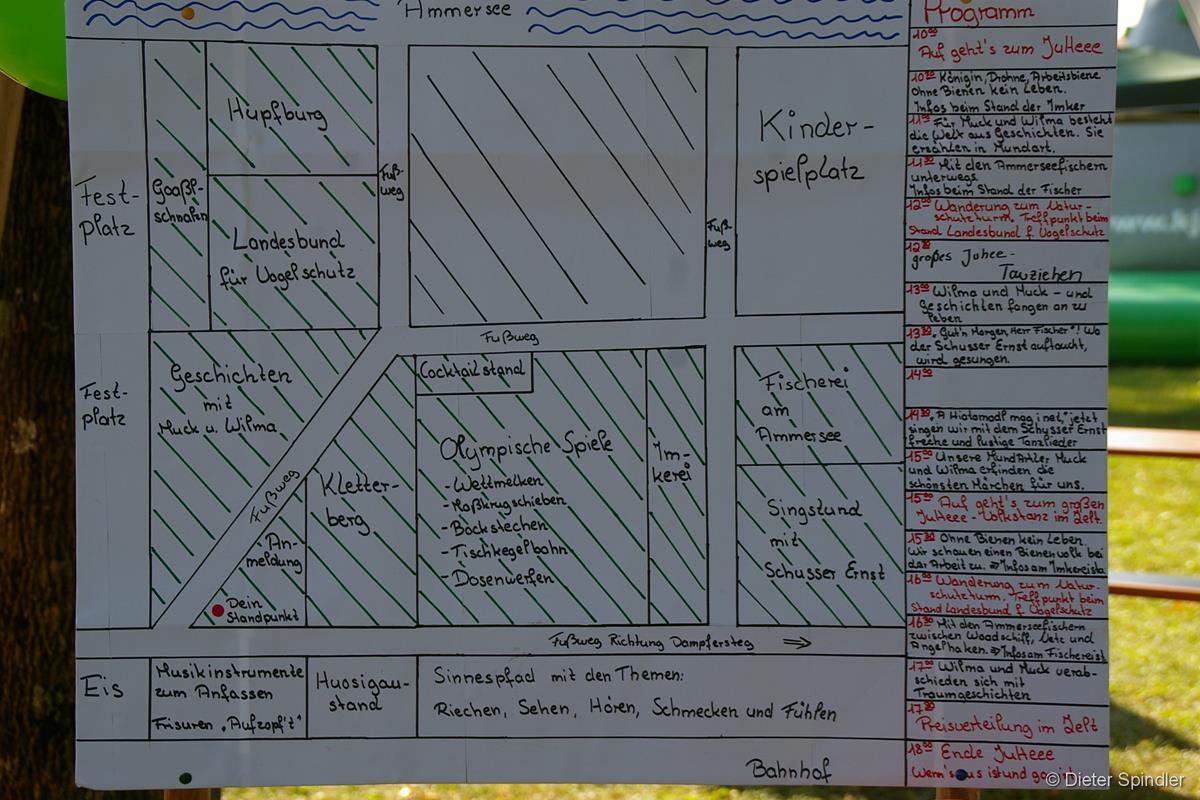 Ammersee
Fest-
platz
Goaßl-
schnalzn
Hüpfburg
Landesbund
für Vogelschutz
Fuß-
weg
Fuß-
weg
Kinder-
spielplatz
Fußweg
Fest-
platz
Geschichten
mit
Muck u. Wilma
Fußweg
An-
meldung
Dein
Standpunkt
Kletter-
berg
Cocktailstand
Olympische Spiele
- Wettmelken
- Maßkrugschieben
- Bockstechen
- Tischkegelbahn
- Dosenwerfen
Im-
kerei
Fischerei
am
Ammersee
Singstund
mit
Schusser Ernst
Fußweg Richtung Dampfersteg ⇒
Eis
Musikinstrumente
zum Anfassen
Frisuren "Aufzopf't"
Huosigau-
stand
Sinnespfad mit den Themen:
Riechen, Sehen, Hören, Schmecken und Fühlen
Bahnhof
Programm
10⁰⁰
Auf geht's zum JuHeee
Königin, Drohne, Arbeitsbiene
Ohne Bienen kein Leben.
Infos beim Stand der Imker
Für Muck und Wilma besteht
die Welt aus Geschichten. Sie
erzählen in Mundart.
11³⁰ Mit den Ammerseefischern
unterwegs
Infos beim Stand der Fischer
12⁰⁰ Wanderung zum Natur-
schutzturm. Treffpunkt beim
Stand Landesbund f. Vogelschutz
großes Juhee-
Tauziehen
13⁰⁰ Wilma und Muck - und
Geschichten fangen an zu
leben
13³⁰ "Gut'n Morgen, Herr Fischer"! Wo
der Schusser Ernst auftaucht,
wird gesungen.
14⁰⁰
14³⁰ "A Hiatamadl mag i net," jetzt
singen wir mit dem Schusser Ernst
freche und lustige Tanzlieder
15⁰⁰ Unsere Mundartler Muck
und Wilma erfinden die
schönsten Märchen für uns.
Auf geht's zum großen
JuHeee-Volkstanz im Zelt.
15³⁰ Ohne Bienen kein Leben.
Wir schauen einen Bienenvolk bei
der Arbeit zu. ⇒ Infos am Imkereist.
16⁰⁰ Wanderung zum Natur-
schutzturm. Treffpunkt beim
Stand Landesbund f. Vogelschutz
16³⁰ Mit den Ammerseefischern
zwischen Woodschiff, Netz und
Angelhaken. ⇒ Infos am Fischereist.
17⁰⁰ Wilma und Muck verab-
schieden sich mit
Traumgeschichten
17³⁰
Preisverteilung im Zelt
18⁰⁰ Ende JuHeee
© Dieter Spindler